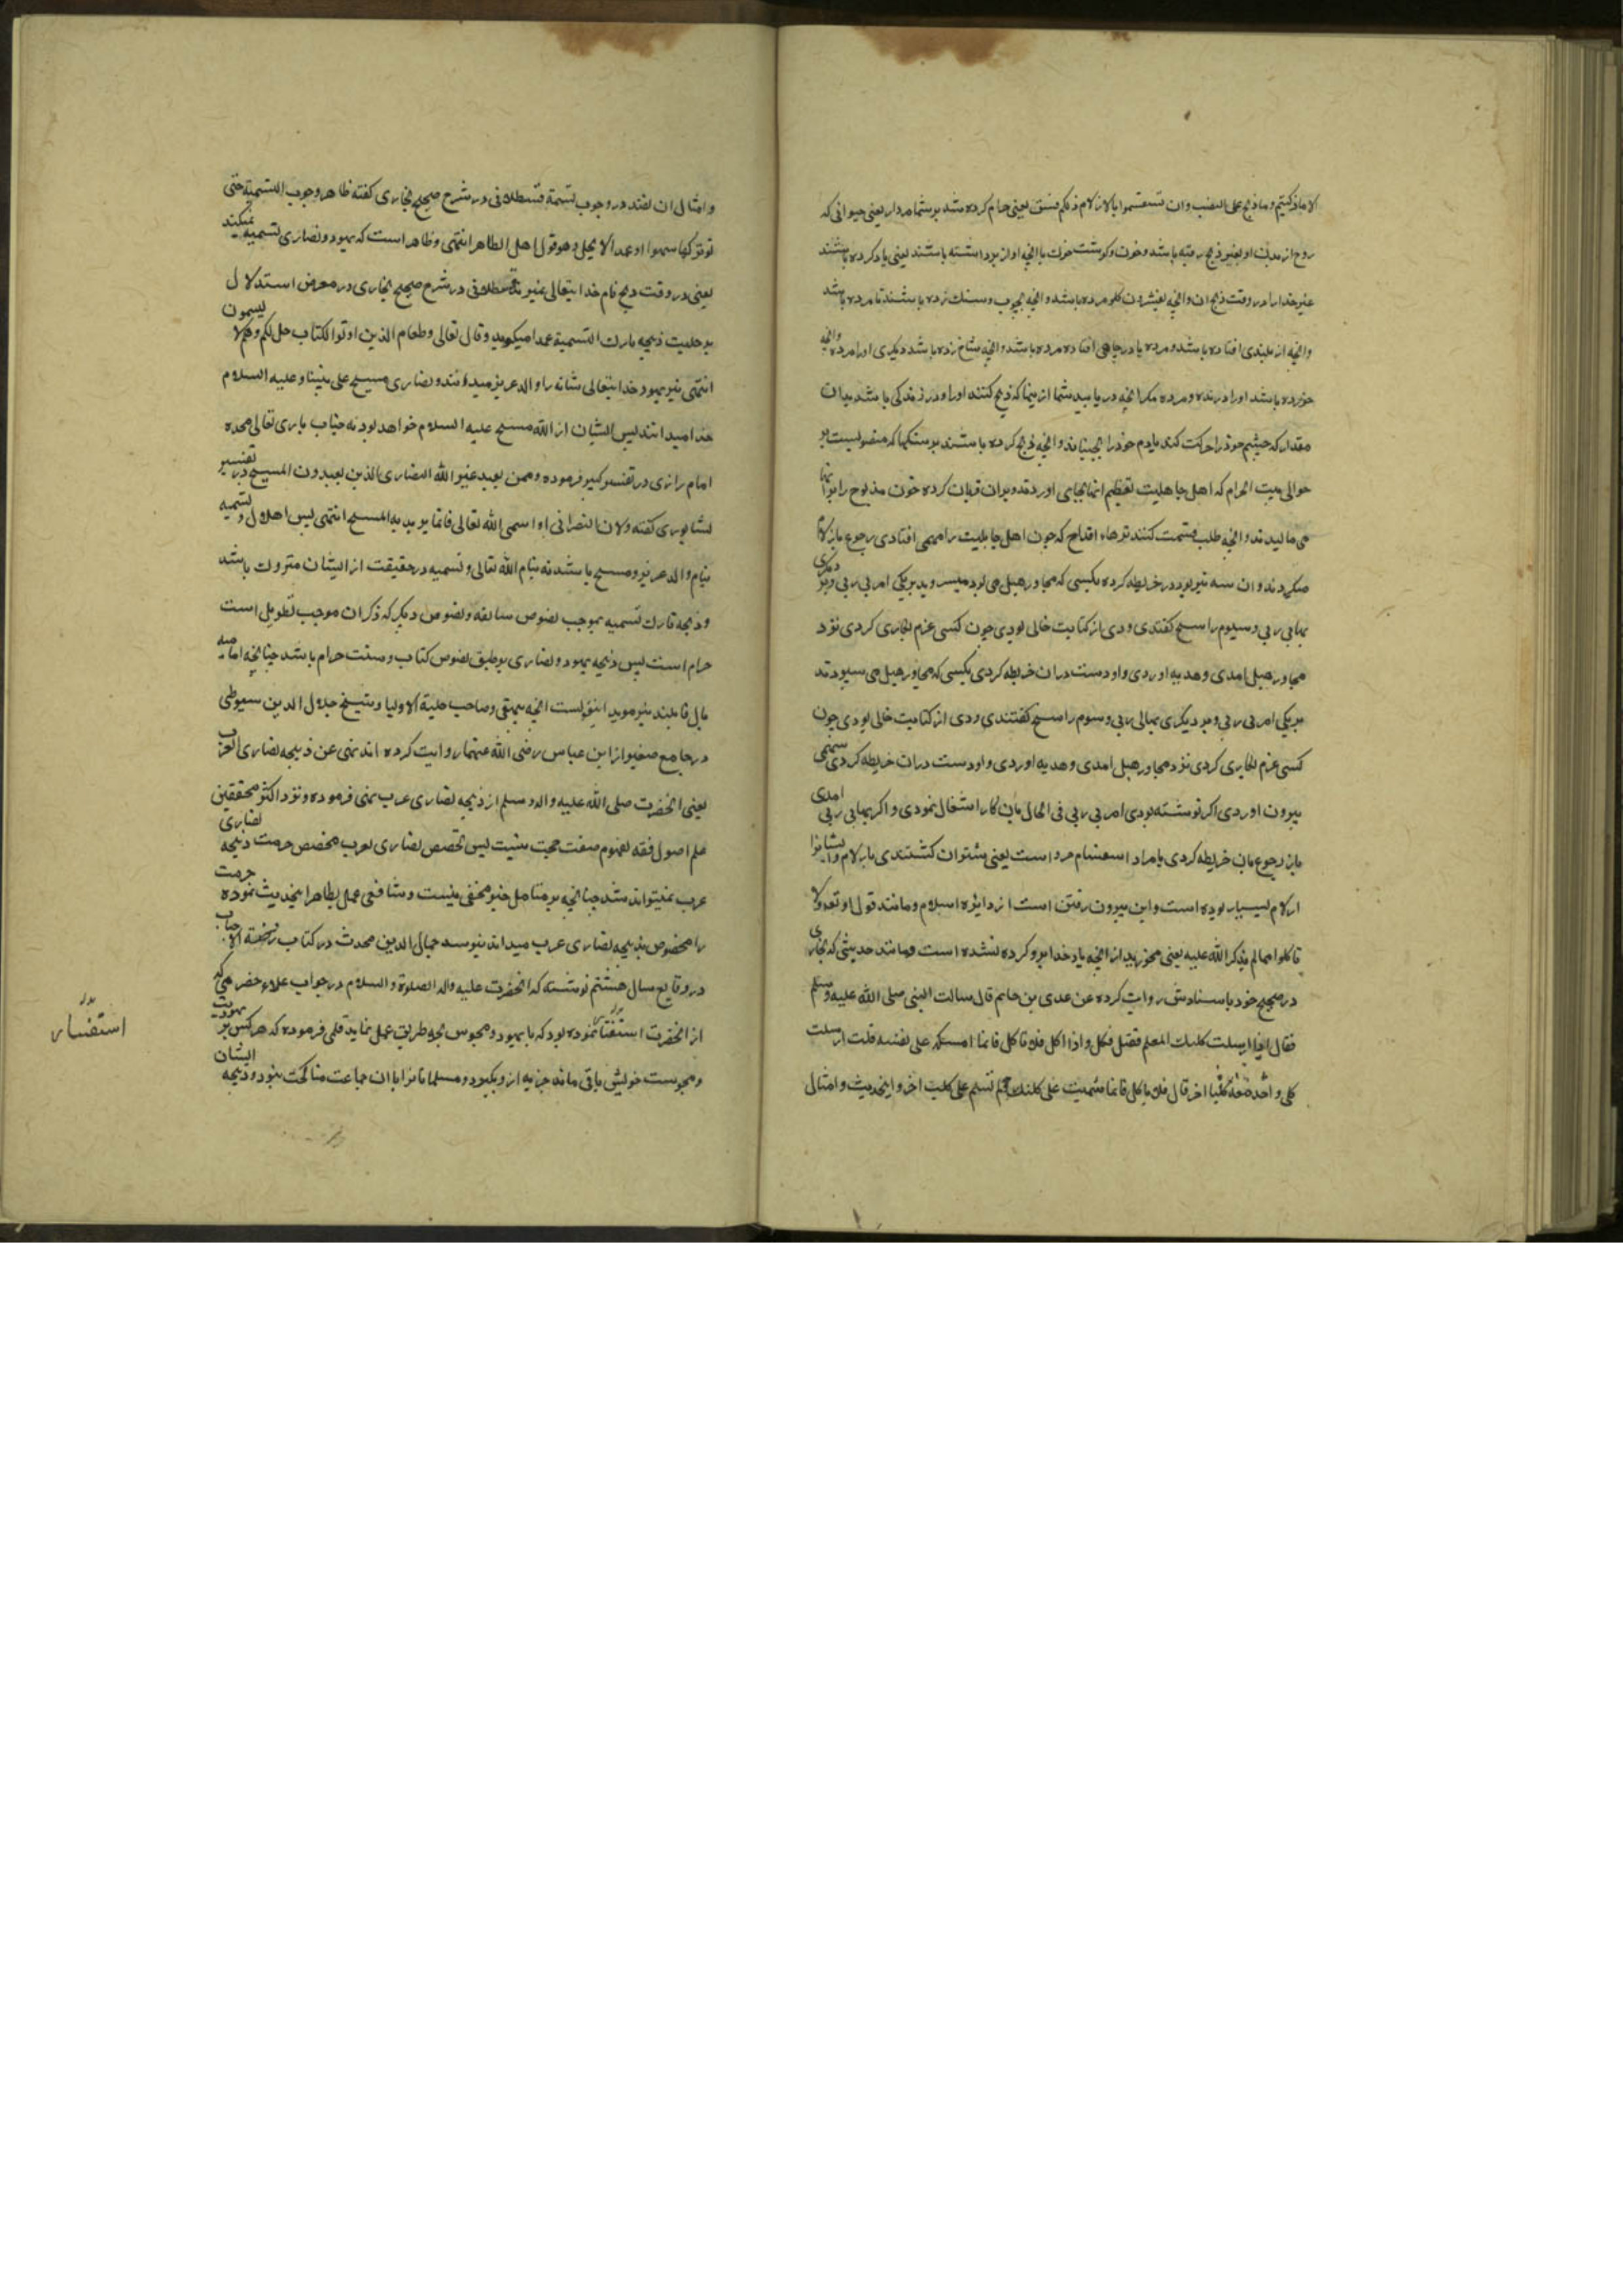 الا ماذکیتم و ماذبح علی النصب وان تستقسموا بالازلام ذلکم فسق یعنی حرام کرده شد بر شما مردار یعنی حیوانی که
روح از بدن او بغیر ذبح رفته باشد و خون و کوشت خوک با انچه اواز برداشته باشند یعنی یاد کرده باشند
غیر خدا را در وقت ذبح ان وانچه بفشردن کلو مرده باشد و انچه بچوب و سنک زده باشند تا مرده باشد
وانچه از بلندی افتاده باشد و مرده یا در چاهی افتاده مرده باشد و انچه بشاخ زده باشد دیکری او را مرده وانچه
خورده باشد او را درنده و مرده مکر انچه در یابید شما از ینها که ذبح کنند او را و در زندکی باشد بدان
مقدار که چشم خود را حرکت کند یا دم خود را بجنباند و انچه ذبح کرده باشند بر سنکها که منصوبست بر
حوالی بیت الحرام که اهل جاهلیت تعظیم انها بجای اوردند و بران قربان کرده خون مذبوح را برانها
می مالیدند و انچه طلب قسمت کنند تیرها اقداح که چون اهل جاهلیت را مهمی افتادی رجوع بازلام
میکردند و ان سه تیر بود در خریطه کرده بکسی که مجاور هبل می بود میسر وید بریکی امرنی ربی و بر دیکری
نهانی ربی و سیوم را منیح کفتندی ودی از کتابت خالی بودی چون کسی عزم بکاری کردی نزد
مجاور هبل امدی و هدیه اوردی و او دست دران خریطه کردی بکسی که مجاور هبل می سپردند
بریکی امرنی ربی و بر دیکری نهانی ربی و سوم را منیح کفتندی ودی از کتابت خالی بودی چون
کسی عزم بکاری کردی نزد مجاور هبل امدی و هدیه اوردی و او دست دران خریطه کردی سهمی
بیرون اوردی اکر نوشته بودی امرنی ربی فی الحال بان کار اشتغال نمودی و اکر نهانی ربی امدی
باز رجوع بان خریطه کردی یا مراد استقسام جزور است یعنی شتران کشتندی بازلام و ایشانرا
ازلام بسیار بوده است و این بیرون رفتن است از دایره اسلام و مانند قول او تعالی ولا
تاکلوا مما لم یذکر الله علیه یعنی مخورید از انچه یاد خدا برو کرده نشده است و مانند حدیثی که بخاری
در صحیح خود باسنادش روایت کرده عن عدی بن حاتم قال سالت النبی صلی الله علیه وسلم
فقال اذا ارسلت کلبک المعلم فقتل فکل واذا اکل فلا تاکل فانما امسکه علی نفسه قلت ارسلت
کلبی واجد معه کلبا اخر قال فلا تاکل فانما سمیت علی کلبک ولم تسم علی کلب اخر و اینحدیث و امثال
و امثال ان نصند در وجوب تسمیة قسطلانی در شرح صحیح بخاری کفته ظاهر وجوب التسمیة حتی
لو ترکها سهوا او عمدا لا یحل وهو قول اهل الظاهر انتهی و ظاهر است که یهود و نصاری تسمیه نمیکنند
یعنی در وقت ذبح نام خدایتعالی نمیبرند قسطلانی در شرح صحیح بخاری در معرض استدلال
بر حلیت ذبیحه تارک التسمیة عمدا میکوید و قال تعالی وطعام الذین اوتوا الکتاب حل لکم وهم لا یسمون
انتهی نیز یهود خدایتعالی شانه را والد عزیز میدانند و نصاری مسیح علی نبینا وعلیه السلام
خدا میدانند پس ایشان از الله مسیح علیه السلام خواهد بود نه جناب باری تعالی مجده
امام رازی در تفسیر کبیر فرموده وممن یعبد غیر الله النصاری الذین یعبدون المسیح در تفسیر
نیشاپوری کفته ولان النصرانی اذا سمی الله تعالی فانما یرید به المسیح انتهی پس اهلال و تسمیه
بنام والد عزیر و مسیح باشد نه بنام الله تعالی و تسمیه در حقیقت از ایشان متروک باشد
و ذبیحه تارک تسمیه بموجب نصوص سابقه و نصوص دیکر که ذکر ان موجب تطویل است
حرام است پس ذبیحه یهود و نصاری بر طبق نصوص کتاب و سنت حرام باشد چنانچه امامیه
بان قایلند نیز موید اینقولست انچه بیهقی و صاحب حلیة الاولیا و شیخ جلال الدین سیوطی
در جامع صغیر از ابن عباس رضی الله عنهما روایت کرده اند نهی عن ذبیحه نصاری العرب
یعنی انحضرت صلی الله علیه واله وسلم از ذبیحه نصاری عرب نهی فرموده و نزد اکثر محققین
علم اصول فقه مفهوم صفت حجت نیست پس تخصیص نصاری بعرب مخصص حرمت ذبیحه نصاری
عرب نمیتواند شد چنانچه بر متامل خبیر مخفی نیست و شافعی عمل بظاهر اینحدیث نموده حرمت
را مخصوص بذبیحه نصاری عرب میداند نیز سید جمال الدین محدث در کتاب روضة الاحباب
در وقایع سال هشتم نوشته که انحضرت علیه واله الصلوة والسلام در جواب علاء حضرمی که
از انحضرت استفسار نموده بود که با یهود و مجوس بچه طریق عمل نماید قلمی فرموده که هر کس بر یهودیت
و مجوسیت خویش باقی ماند جزیه از و بکیرد و مسلمانانرا با ان جماعت مناکحت نبود و ذبیحه ایشان
استفسار